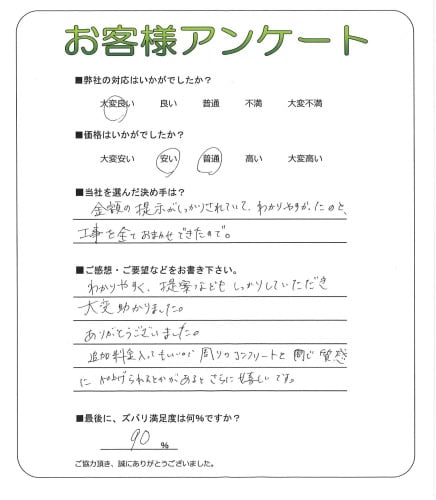 お客様アンケート
■弊社の対応はいかがでしたか?
大変良い 良い 普通 不満 大変不満
■価格はいかがでしたか?
大変安い 安い 普通 高い 大変高い
■当社を選んだ決め手は?
金額の提示がしっかりされていて、わかりやすかったのと、
工事を全ておまかせできたので。
■ご感想・ご要望などをお書き下さい。
わかりやすく、提案などもしっかりしていただき
大変助かりました。
ありがとうございました。
追加料金入ってもいいので周りのコンクリートと同じ質感
に仕上げられるとかがあるとさらに嬉しいです。
■最後に、ズバリ満足度は何%ですか?
90 %
ご協力頂き、誠にありがとうございました。